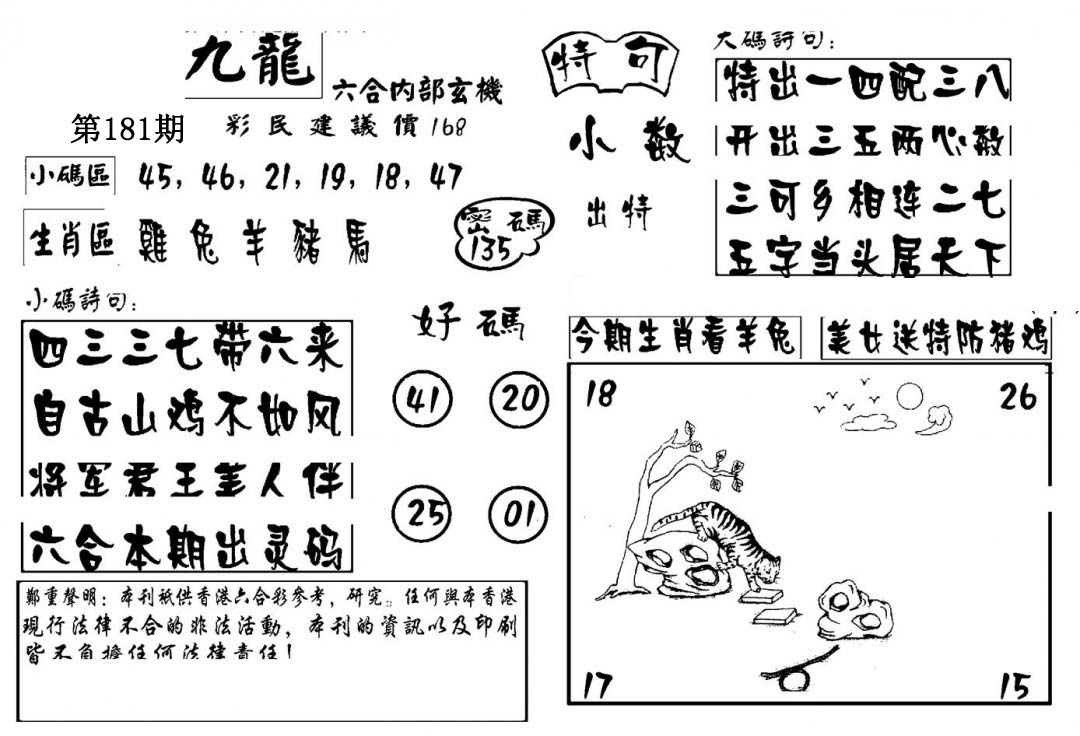 九龍
六合内部玄機
第181期
彩民建議價168
小碼區 45, 46, 21, 19, 18, 47
生肖區 雞兔羊豬馬
密碼
135
小碼詩句:
四三三七带六来
自古山鸡不如风
将军君王美人伴
六合本期出灵码
好碼
41 20
25 01
鄭重聲明:本刊祇供香港六合彩參考,研究。任何與本香港
現行法律不合的非法活動,本刊的資訊以及印刷
皆不負擔任何法律責任!
特句
小数
出特
大碼詩句:
特出一四配三八
开出三五两心数
三可乡相连二七
五字当头居天下
今期生肖看羊兔
美女送特防猪鸡
18 26
17 15